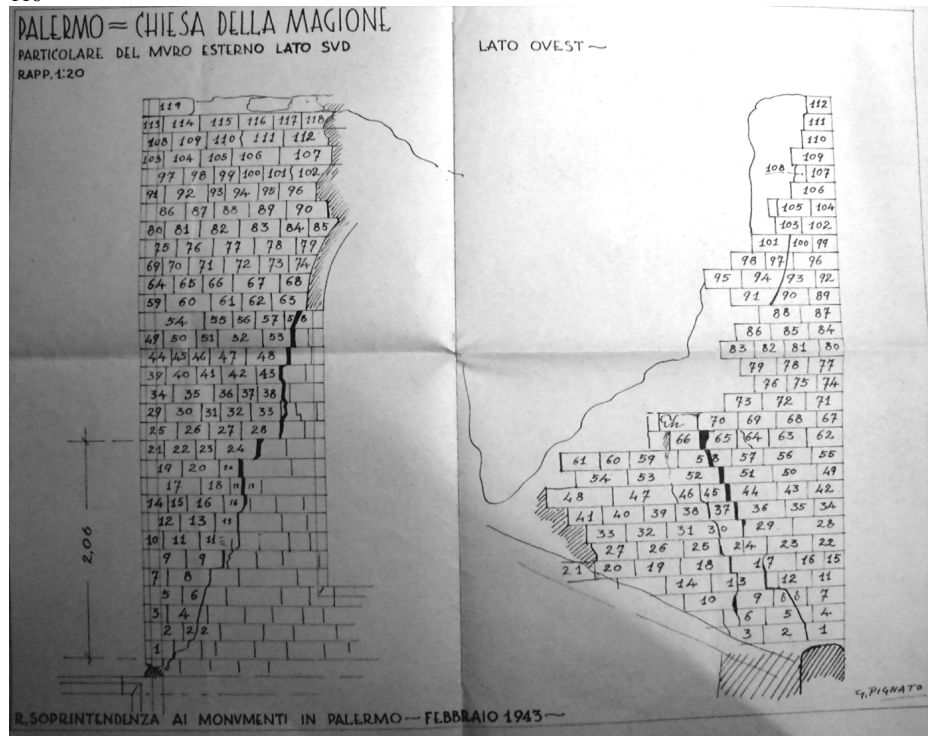 PALERMO = CHIESA DELLA MAGIONE
PARTICOLARE DEL MVRO ESTERNO LATO SVD
RAPP. 1:20
119
113 114 115 116 117 118
108 109 110 111 112
103 104 105 106 107
97 98 99 100 101 102
91 92 93 94 95 96
86 87 88 89 90
80 81 82 83 84 85
75 76 77 78 79
69 70 71 72 73 74
64 65 66 67 68
59 60 61 62 63
54 55 56 57 58
49 50 51 52 53
44 45 46 47 48
39 40 41 42 43
34 35 36 37 38
29 30 31 32 33
25 26 27 28
21 22 23 24
19 20 20
17 18
14 15 16 16
12 13 13
10 11 11
9 9
7 8
5 6
3 4
2 2 2
1
2,06
LATO OVEST ~
112
111
110
109
108 107
106
105 104
103 102
101 100 99
98 97 96
95 94 93 92
91 90 89
88 87
86 85 84
83 82 81 80
79 78 77
76 75 74
73 72 71
70 69 68 67
66 65 64 63 62
61 60 59 58 57 56 55
54 53 52 51 50 49
48 47 46 45 44 43 42
41 40 39 38 37 36 35 34
33 32 31 30 29 28
27 26 25 24 23 22
21 20 19 18 17 16 15
14 13 12 11
10 9 8 8 7
6 5 4
3 2 1
G. PIGNATO
R. SOPRINTENDENZA AI MONVMENTI IN PALERMO ~ FEBBRAIO 1943 ~